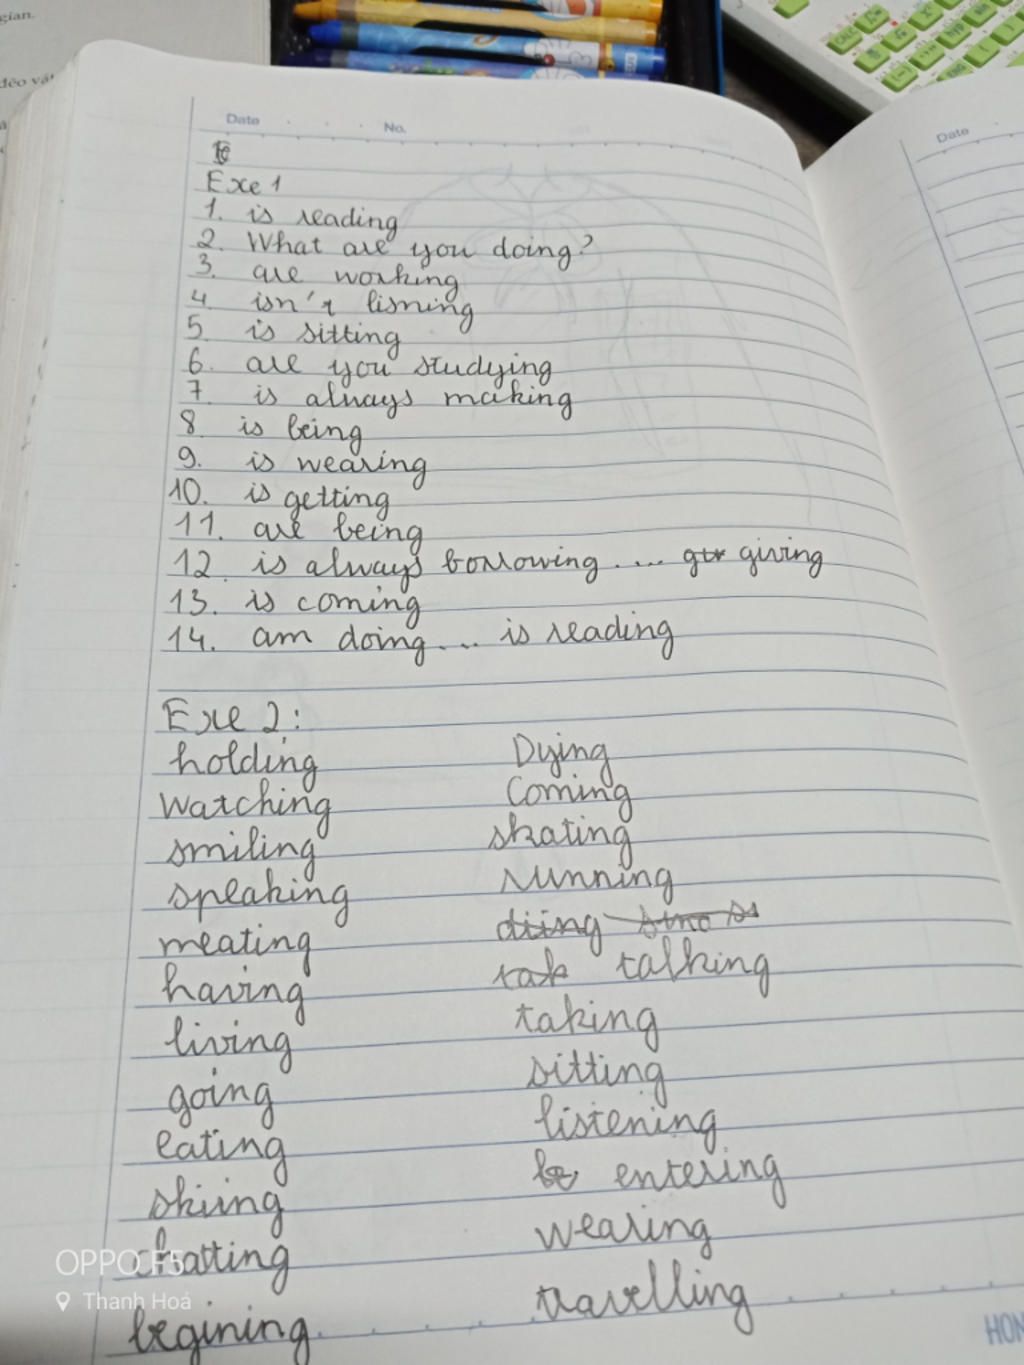 gian.
đẽo vát
Date No.
Date
Exe 1
1. is reading
2. What are you doing?
3. are working
4. isn't lisning
5. is sitting
6. are you studying
7. is always making
8 is being
9. is wearing
10. is getting
11. are being
12. is always borrowing .... giving
13. is coming
14. am doing ... is reading
Exe 2:
holding Dying
watching Coming
smiling skating
speaking running
meating diing
having tak talking
living taking
going sitting
eating listening
skiing be entering
chatting wearing
begining travelling
OPPO F5
Thanh Hoá
HON